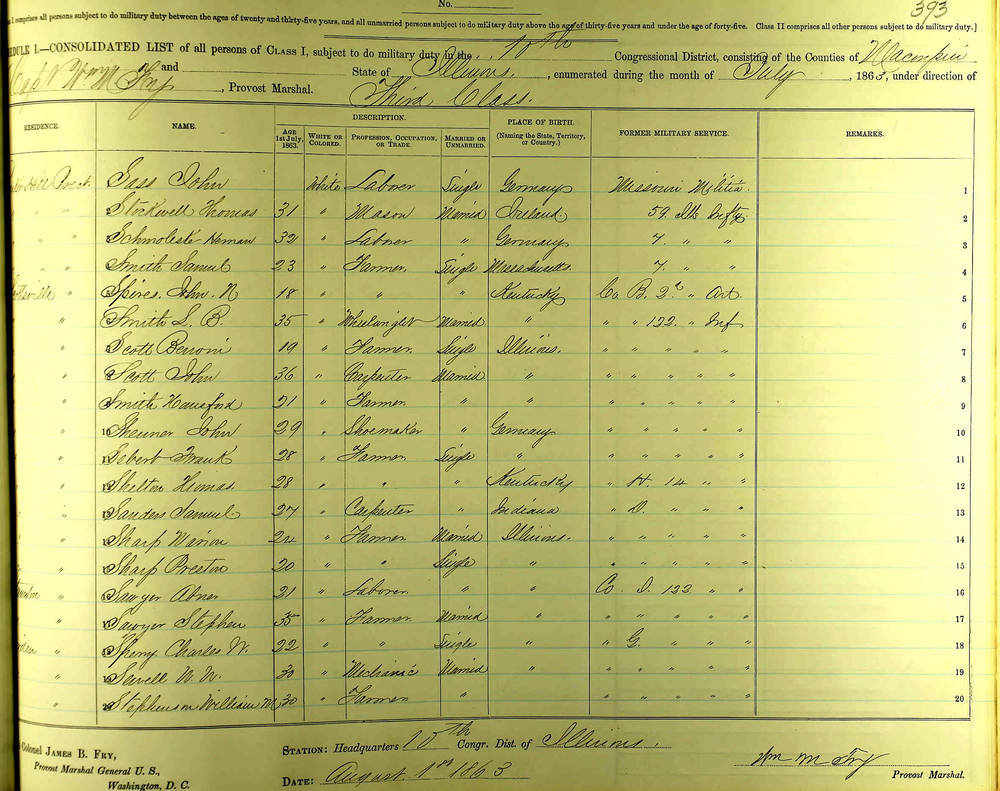 No.
393
[ I comprises all persons subject to do military duty between the ages of twenty and thirty-five years, and all unmarried persons subject to do military duty above the age of thirty-five years and under the age of forty-five. Class II comprises all other persons subject to do military duty.]
DULE I.—CONSOLIDATED LIST of all persons of CLASS I, subject to do military duty in the 10th Congressional District, consisting of the Counties of Macoupin
and State of Illinois, enumerated during the month of July, 1863, under direction of
Capt Wm M Fry, Provost Marshal. Third Class.
RESIDENCE. NAME. DESCRIPTION. PLACE OF BIRTH. (Naming the State, Territory, or Country.) FORMER MILITARY SERVICE. REMARKS.
AGE 1st July, 1863. WHITE OR COLORED. PROFESSION, OCCUPATION, OR TRADE. MARRIED OR UNMARRIED.
Prect. Sass John White Laborer Single Germany Missouri Militia 1
" " Stockwell Thomas 31 " Mason Married Ireland 59 Ills Infty 2
" " Schmoleske Herman 32 " Laborer " Germany 7 " " 3
" " Smith Samuel 23 " Farmer Single Massachusetts 7 " " 4
ottsville " 5 Spires John N 18 " " " Kentucky Co B. 2d " Art 5
" Smith L. B. 35 " Wheelwright Married " " " 122 " Inf 6
" Scott Benoni 19 " Farmer Single Illinois " " " " " 7
" Scott John 36 " Carpenter Married " " " " " " 8
" Smith Hansford 21 " Farmer " " " " " " " 9
" 10 John 29 " Shoemaker " Germany " " " " " 10
" 11 Sebert Frank 28 " Farmer Single " " " " " " 11
" 12 Shelton Thomas 28 " " " Kentucky " H. 14 " " 12
" 13 Sanders Samuel 27 " Carpenter " Indiana " D. " " " 13
" 14 Sharp Marion 24 " Farmer Married Illinois " " " " " 14
" 15 Sharp Preston 20 " " Single " " " " " " 15
" 16 Sawyer Abner 21 " Laborer " " Co D. 122 " " 16
" 17 Sawyer Stephen 35 " Farmer Married " " " " " " 17
" 18 Sperry Charles W. 22 " " Single " " G. " " " 18
" 19 Sewell W. W. 30 " Mechanic Married " " " " " " 19
" 20 Stephenson William M. 30 " Farmer " " " " " " " 20
Colonel JAMES B. FRY,
Provost Marshal General U. S.,
Washington, D. C.
STATION: Headquarters 10th Congr. Dist. of Illinois.
DATE: August 1st 1863
Wm M Fry
Provost Marshal.